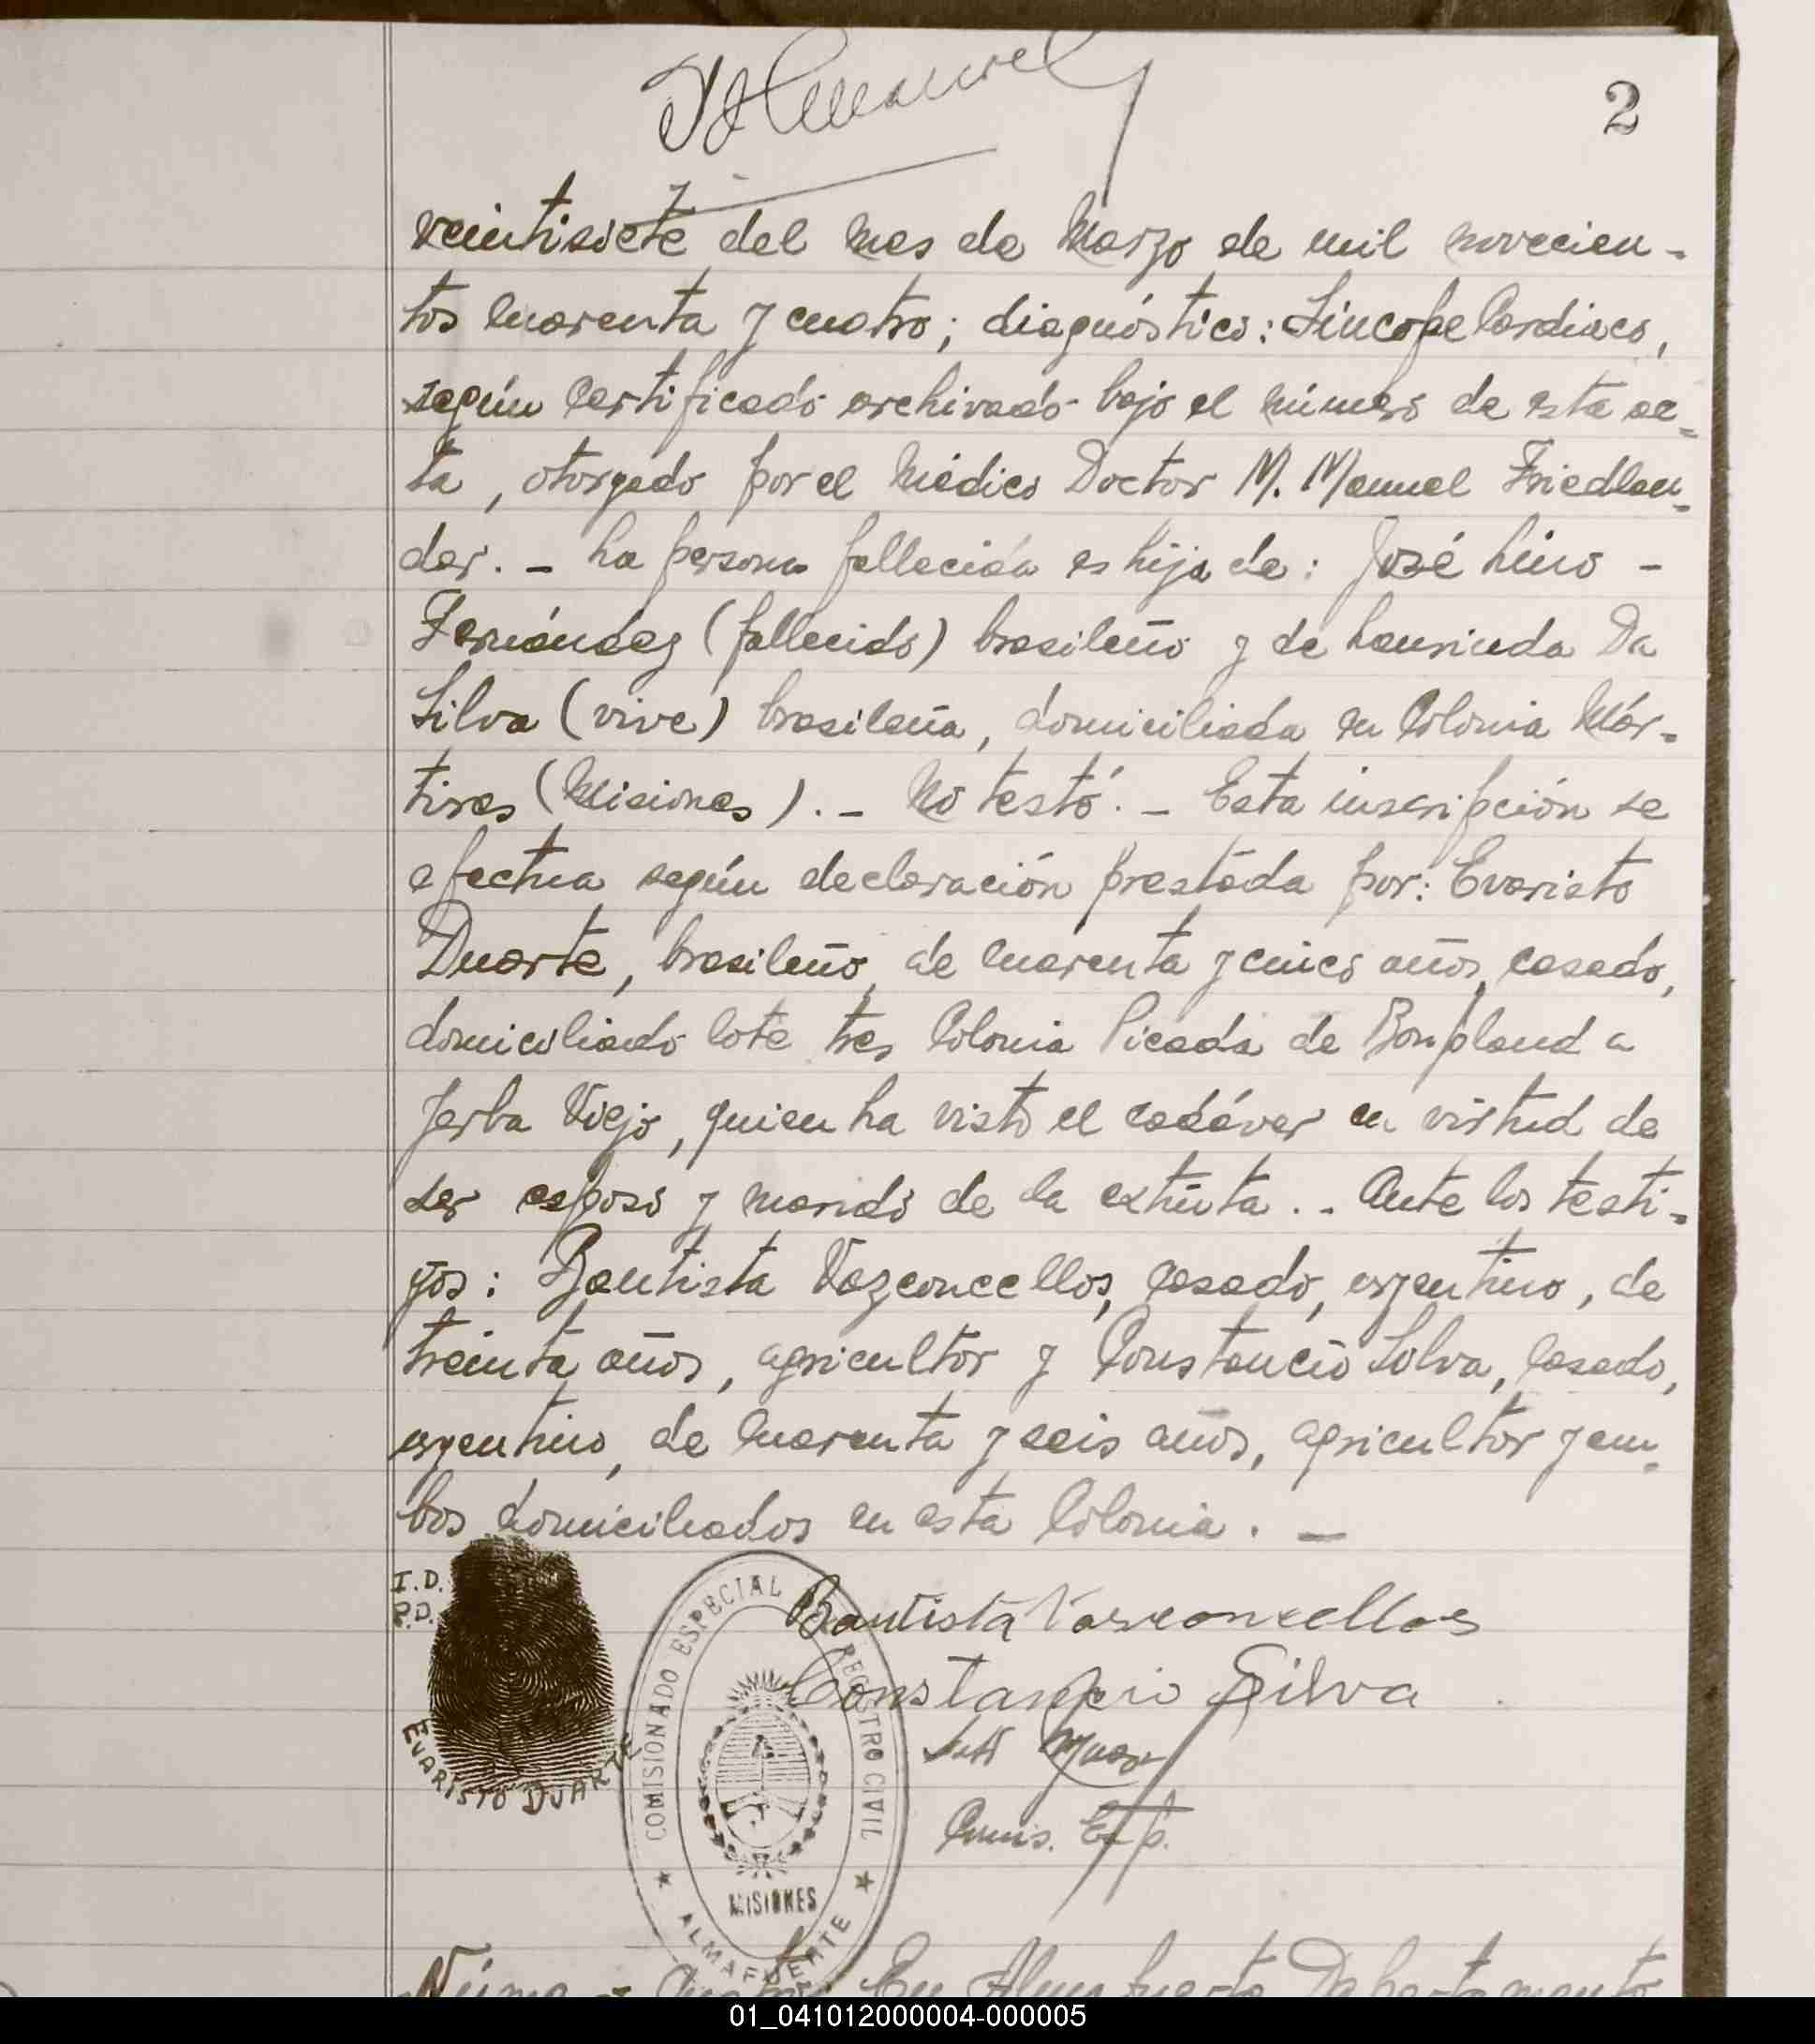 2
veintisiete del mes de Marzo de mil novecien-
tos cuarenta y cuatro; diagnóstico: Síncope Cardiaco,
según Certificado archivado bajo el número de esta ac-
ta, otorgado por el Médico Doctor M. Manuel Friedlan-
der. - La persona fallecida es hija de: José Lino -
Fernández (fallecido) brasileño y de Laurinda Da
Silva (vive) brasileña, domiciliada en Colonia Már-
tires (Misiones). - No testó. - Esta inscripción se
efectua según declaración prestada por: Evaristo
Duarte, brasileño, de cuarenta y cinco años, casado,
domiciliado lote tres Colonia Picada de Bonpland a
Yerba Viejo, quien ha visto el cadáver en virtud de
ser esposo y marido de la extinta. . - Ante los testi-
gos: Bautista Vazconcellos, casado, argentino, de
treinta años, agricultor y Constancio Solva, casado,
argentino, de cuarenta y seis años, agricultor y am-
bos domiciliados en esta Colonia. -
I.D.
P.D.
EVARISTO DUARTE
COMISIONADO ESPECIAL REGISTRO CIVIL
MISIONES
ALMAFUERTE
Bautista Vasconcellos
Constancio Silva
Comis. Esp.
En Almafuerte Departamento
01_041012000004-000005